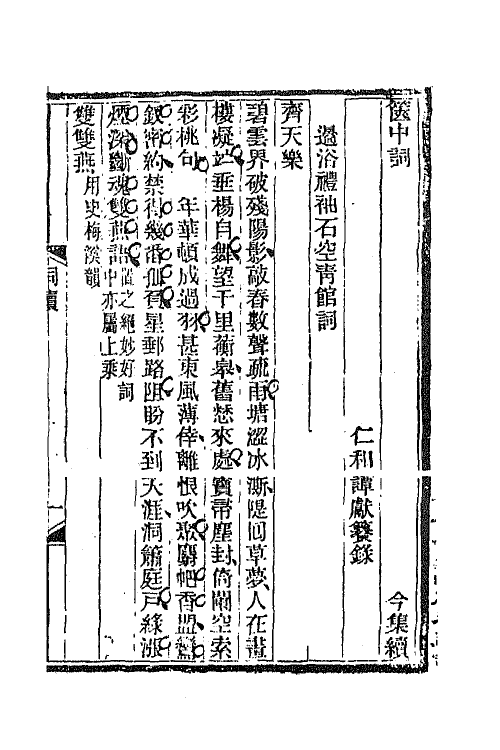 篋中詞　今集續
仁和譚獻纂錄
過浴禮袖石空靑館詞
齊天樂
碧雲界破殘陽影敲春數聲疏雨塘澀冰澌隄回草夢人在畫
樓凝竚垂楊自舞望千里蘅皐舊愁來處寶帶塵封倚闌空索
彩桃句　年華頓成過羽甚東風薄倖離恨吹聚羂帊香盟
釵密約禁得幾番孤負星郵路阻盼不到天涯洞簫庭戶綠漲
煙深斷魂雙燕語置之絕妙好詞中亦屬上乘
雙雙燕用史梅溪韻
詞續
一